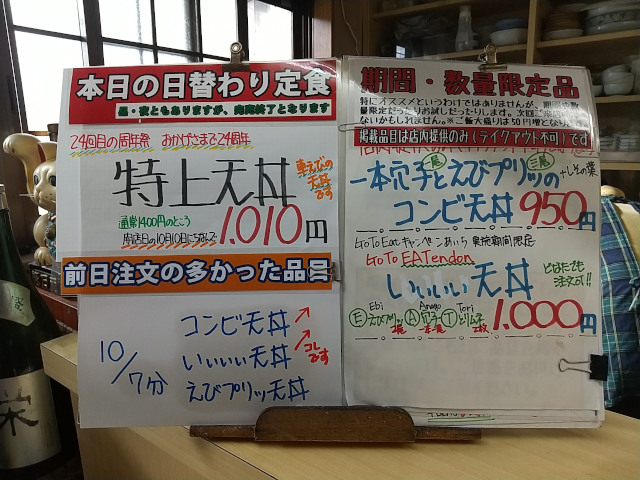 本日の日替わり定食
昼・夜ともありますが、売切終了となります
24回目の周年祭 おかげさまで24周年
特上天丼
車えびの
天丼
です
通常1400円のところ
開店日の10月10日にちなんで
1.010円
前日注文の多かった品目
コンビ天丼
いいいい天丼
えびプリッツ天丼
コレ
です
10/7分
期間・数量限定品
特にオススメというわけではありませんが、
掲載品目は店内提供のみ(テイクアウト不可)です
一本穴子とえびプリッの
一尾
二尾
+しその葉
コンビ天丼 950円
GoTo Eat キャンペーンあいち 実施期間限定
GoTo EATendon
いいいい天丼
どなたでも
注文可!!
Ebi Anago Tori
E えびプリッ A 穴子 T とりムネ
1.000円